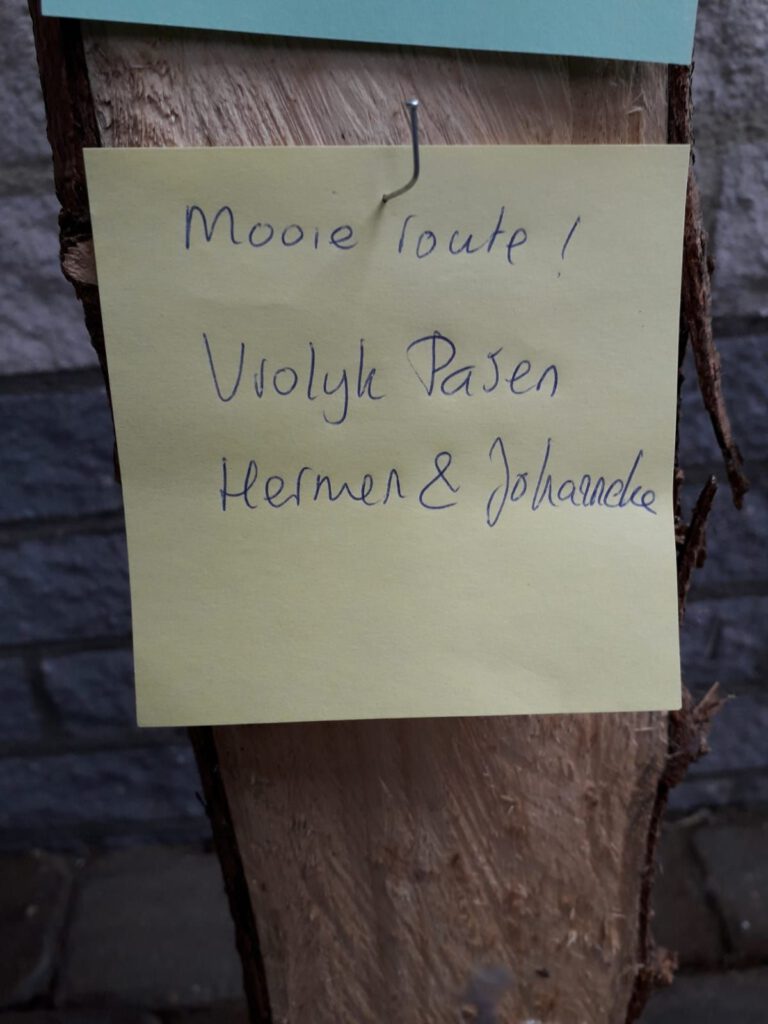 Mooie route!
Vrolyk Pasen
Hermen & Johanneke